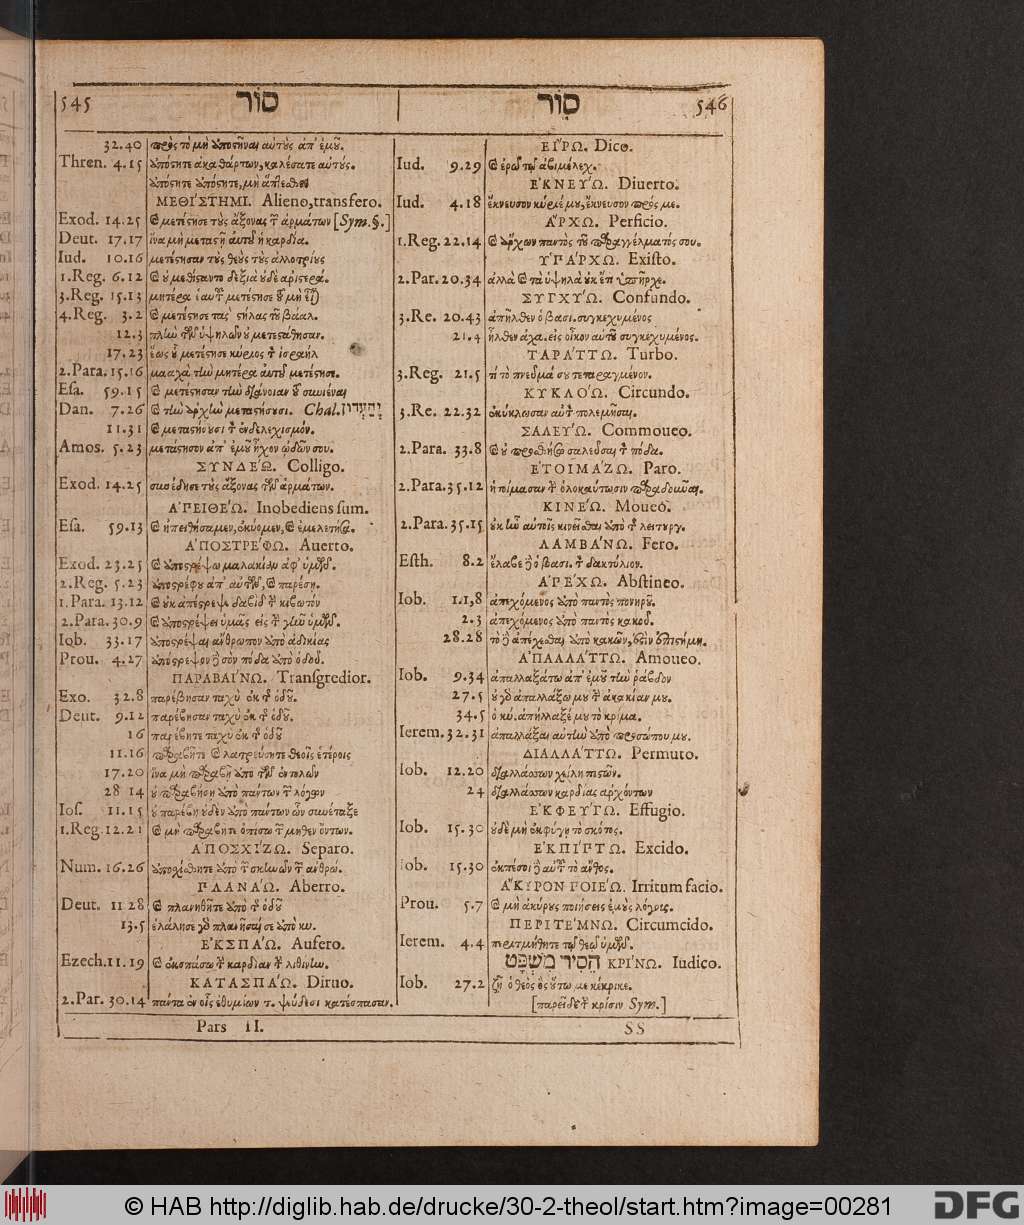 545 סור
32.40 πρὸς τὸ μὴ ἀποστῆναι αὐτοὺς ἀπ' ἐμοῦ.
Thren. 4.15 ἀπόστητε ἀκαθάρτων, καλέσατε αὐτούς.
ἀπόστητε ἀπόστητε, μὴ ἅπτεσθε
ΜΕΘΙΣΤΗΜΙ. Alieno, transfero.
Exod. 14.25 καὶ μετέστησε τοὺς ἄξονας τῶν ἁρμάτων [Sym. §.]
Deut. 17.17 ἵνα μὴ μεταστῇ αὐτοῦ ἡ καρδία.
Iud. 10.16 μετέστησαν τοὺς θεοὺς τοὺς ἀλλοτρίους
1.Reg. 6.12 καὶ οὐ μεθίσταντο δεξιὰ οὐδὲ ἀριστερά.
3.Reg. 15.13 μητέρα ἑαυτοῦ μετέστησε τοῦ μὴ εἶναι
4.Reg. 3.2 καὶ μετέστησε τὰς στήλας τοῦ βάαλ.
12.3 πλὴν τῶν ὑψηλῶν οὐ μετεστάθησαν.
17.23 ἕως οὗ μετέστησε κύριος τὸν ἰσραήλ
2.Para. 15.16 μααχὰ τὴν μητέρα αὐτοῦ μετέστησε.
Esa. 59.15 καὶ μετέστησαν τὴν διάνοιαν τοῦ συνιέναι
Dan. 7.26 καὶ τὴν ἀρχὴν μεταστήσουσι. Chal. יְהַעְדּוֹן
11.31 καὶ μεταστήσουσι τὸν ἐνδελεχισμόν.
Amos. 5.23 μετάστησον ἀπ' ἐμοῦ ἦχον ᾠδῶν σου.
ΣΥΝΔΕΩ. Colligo.
Exod. 14.25 συνέδησε τοὺς ἄξονας τῶν ἁρμάτων.
ΑΠΕΙΘΕΩ. Inobediens sum.
Esa. 59.13 καὶ ἠπειθήσαμεν, ἐκύομεν, καὶ ἐμελετήσαμεν.
ΑΠΟΣΤΡΕΦΩ. Auerto.
Exod. 23.25 καὶ ἀποστρέψω μαλακίαν ἀφ' ὑμῶν.
2.Reg. 5.23 ἀποστρέφου ἀπ' αὐτῶν, καὶ παρέσῃ.
1.Para. 13.12 καὶ οὐκ ἀπέστρεψε δαβὶδ τὴν κιβωτόν
2.Para. 30.9 καὶ ἀποστρέψει ὑμᾶς εἰς τὴν γῆν ὑμῶν.
Iob. 33.17 ἀποστρέψαι ἄνθρωπον ἀπὸ ἀδικίας
Prou. 4.27 ἀπόστρεψον δὲ σὸν πόδα ἀπὸ ὁδοῦ.
ΠΑΡΑΒΑΙΝΩ. Transgredior.
Exo. 32.8 παρέβησαν ταχὺ ἐκ τῆς ὁδοῦ.
Deut. 9.12 παρέβησαν ταχὺ ἐκ τῆς ὁδοῦ.
16 παρέβητε ταχὺ ἐκ τῆς ὁδοῦ
11.16 παραβῆτε καὶ λατρεύσητε θεοῖς ἑτέροις
17.20 ἵνα μὴ παραβῇ ἀπὸ τῶν ἐντολῶν
28 14 οὐ παραβήσῃ ἀπὸ πάντων τῶν λόγων
Ios. 11.15 οὐ παρέβη οὐδὲν ἀπὸ πάντων ὧν συνέταξε
1.Reg. 12.21 καὶ μὴ παραβῆτε ὀπίσω τῶν μηθὲν ὄντων.
ΑΠΟΣΧΙΖΩ. Separo.
Num. 16.26 ἀποσχίσθητε ἀπὸ τῶν σκηνῶν τῶν ἀνθρώ.
ΠΛΑΝΑΩ. Aberro.
Deut. 11 28 καὶ πλανηθῆτε ἀπὸ τῆς ὁδοῦ
13.5 ἐλάλησε γὰρ πλανῆσαί σε ἀπὸ κυ.
ΕΚΣΠΑΩ. Aufero.
Ezech. 11.19 καὶ ἐκσπάσω τὴν καρδίαν τὴν λιθίνην.
ΚΑΤΑΣΠΑΩ. Diruo.
2.Par. 30.14 πάντα ἐν οἷς ἐθυμίων τ. ψεύδεσι κατέσπασαν.
Pars II.
סוּר 546
ΕΙΡΩ. Dico.
Iud. 9.29 καὶ ἐρῶ τῷ ἀβιμέλεχ.
ΕΚΝΕΥΩ. Diuerto.
Iud. 4.18 ἔκνευσον κύριέ μου, ἔκνευσον πρός με.
ΑΡΧΩ. Perficio.
1.Reg. 22.14 καὶ ἄρχων παντὸς τοῦ παραγγέλματός σου.
ΥΠΑΡΧΩ. Existo.
2.Par. 20.34 ἀλλὰ καὶ τὰ ὑψηλὰ οὐκ ἔτι ὑπῆρχε.
ΣΥΓΧΥΩ. Confundo.
3.Re. 20.43 ἀπῆλθεν ὁ βασι. συγκεχυμένος
21.4 ἦλθεν ἀχα. εἰς οἶκον αὐτοῦ συγκεχυμένος.
ΤΑΡΑΤΤΩ. Turbo.
3.Reg. 21.5 τί τὸ πνεῦμά σου τεταραγμένον.
ΚΥΚΛΟΩ. Circundo.
3.Re. 22.32 ἐκύκλωσαν αὐτὸν πολεμῆσαι.
ΣΑΛΕΥΩ. Commoueo.
2.Para. 33.8 καὶ οὐ προσθήσω σαλεῦσαι τὸν πόδα.
ΕΤΟΙΜΑΖΩ. Paro.
2.Para. 35.12 ἡτοίμασαν τὴν ὁλοκαύτωσιν παραδοῦναι.
ΚΙΝΕΩ. Moueo.
2.Para. 35.15 οὐκ ἦν αὐτοῖς κινεῖσθαι ἀπὸ τῆς λειτουργ.
ΛΑΜΒΑΝΩ. Fero.
Esth. 8.2 ἔλαβε δὲ ὁ βασι. τὸν δακτύλιον.
ΑΠΕΧΩ. Abstineo.
Iob. 1.1,8 ἀπεχόμενος ἀπὸ παντὸς πονηροῦ.
2.3 ἀπεχόμενος ἀπὸ παντὸς κακοῦ.
28.28 τὸ δὲ ἀπέχεσθαι ἀπὸ κακῶν, ἐστὶν ἐπιστήμη.
ΑΠΑΛΛΑΤΤΩ. Amoueo.
Iob. 9.34 ἀπαλλαξάτω ἀπ' ἐμοῦ τὴν ῥάβδον
27.5 οὐ γὰρ ἀπαλλάξω μου τὴν ἀκακίαν μου.
34.5 ὁ κύ. ἀπήλλαξέ μου τὸ κρίμα.
Ierem. 32.31 ἀπαλλάξαι αὐτὴν ἀπὸ προσώπου μου.
ΔΙΑΛΛΑΤΤΩ. Permuto.
Iob. 12.20 διαλλάσσων χείλη πιστῶν.
24 διαλλάσσων καρδίας ἀρχόντων
ΕΚΦΕΥΓΩ. Effugio.
Iob. 15.30 οὐδὲ μὴ ἐκφύγῃ τὸ σκότος.
ΕΚΠΙΠΤΩ. Excido.
Iob. 15.30 ἐκπέσοι δὲ αὐτοῦ τὸ ἄνθος.
ΑΚΥΡΟΝ ΠΟΙΕΩ. Irritum facio.
Prou. 5.7 καὶ μὴ ἀκύρους ποιήσεις ἐμοὺς λόγους.
ΠΕΡΙΤΕΜΝΩ. Circumcido.
Ierem. 4.4 περιτμήθητε τῷ θεῷ ὑμῶν.
הֵסִיר מִשְׁפָּט ΚΡΙΝΩ. Iudico.
Iob. 27.2 ζῇ ὁ θεὸς ὃς οὕτω με κέκρικε.
[παρεῖδε τὴν κρίσιν Sym.]
SS
© HAB http://diglib.hab.de/drucke/30-2-theol/start.htm?image=00281
DFG